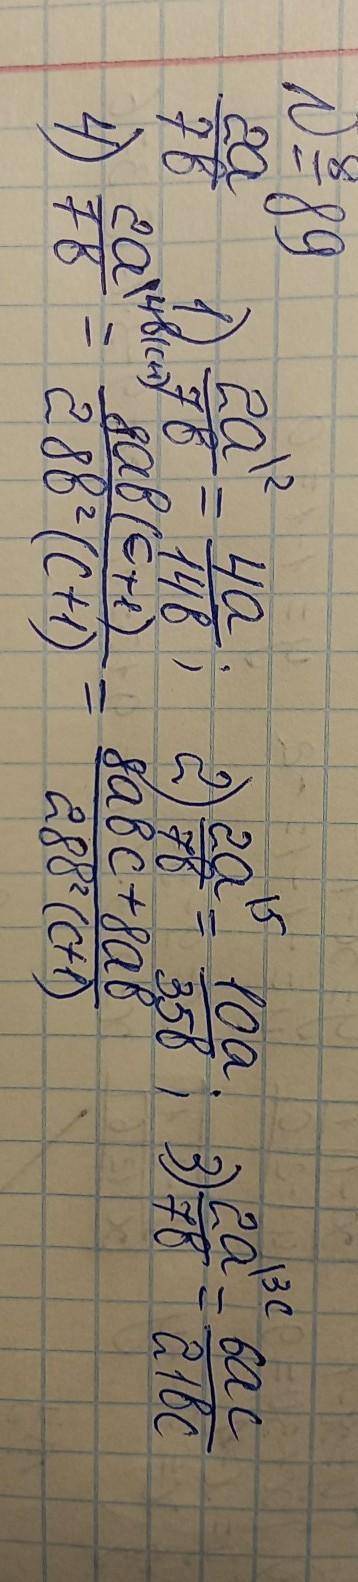 № = 89
2a/7b 1) 2a\2/7b = 4a/14b; 2) 2a\5/7b = 10a/35b; 3) 2a\3c/7b = 6ac/21bc
4) 2a\4b(c+1)/7b = 8ab(c+1)/28b²(c+1) = 8abc+8ab/28b²(c+1)